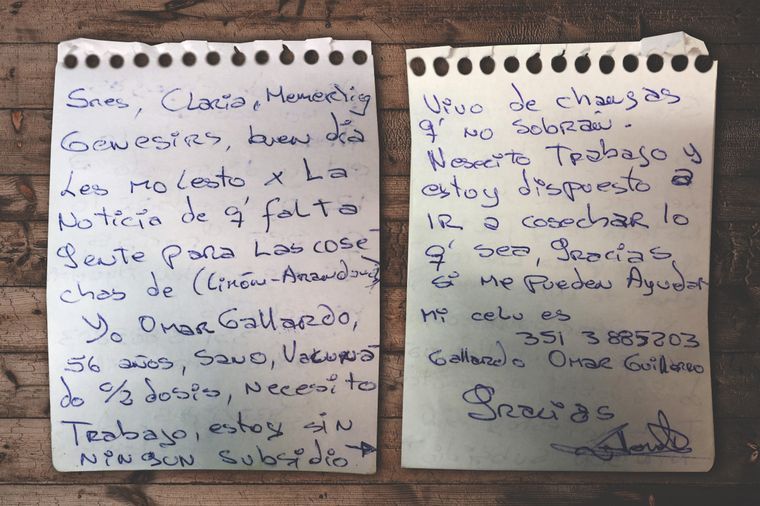 Sres, Claria, Memerdig
Genesirs, buen día
Les molesto x La
Noticia de q' falta
gente para Las cose-
chas de (Limón-Arandano)
Yo Omar Gallardo,
56 años, Sano, Vacuna
do c/3 dosis, necesito
Trabajo, estoy sin
ningun subsidio
Vivo de changas
q' no sobran.
Nesecito Trabajo y
estoy dispuesto a
IR a cosechar lo
q' sea, gracias
si me pueden Ayudar
Mi celu es
351 3885203
Gallardo Omar Guillermo
Gracias